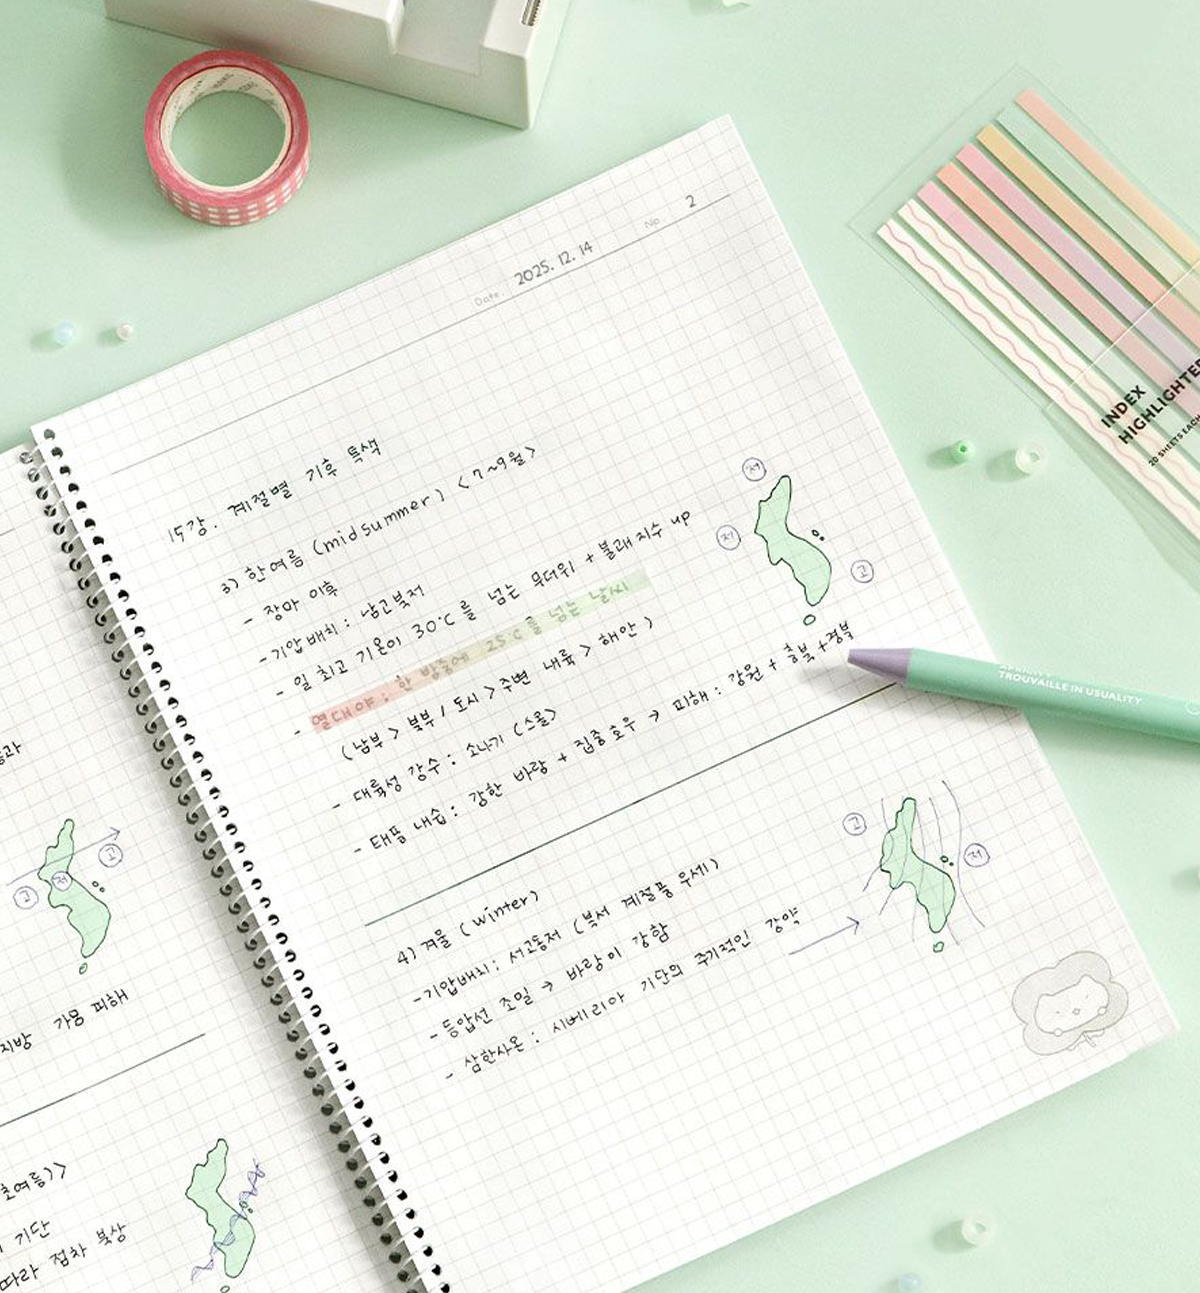 Date. 2025. 12. 14
No. 2
15강. 계절별 기후 특색
3) 한여름 (midsummer) <7~9월>
- 장마 이후
- 기압배치 : 남고북저
- 일 최고 기온이 30°C를 넘는 무더위 + 불쾌지수 up
- 열대야 : 한 밤중에 25°C를 넘는 날씨
(남부 > 북부 / 도시 > 주변 내륙 > 해안)
- 대륙성 강수 : 소나기 (스콜)
- 태풍 내습 : 강한 바람 + 집중호우 → 피해 : 강원 + 충북 + 경북
저
저
고
4) 겨울 (winter)
- 기압배치 : 서고동저 (북서 계절풍 우세)
- 등압선 조밀 → 바람이 강함
- 삼한사온 : 시베리아 기단의 주기적인 강약
고
저
고
저
고
지방 가뭄 피해
초여름)>
기단
따라 점차 북상
INDEX
HIGHLIGHTER
20 SHEETS EACH
TROUVAILLE IN USUALITY